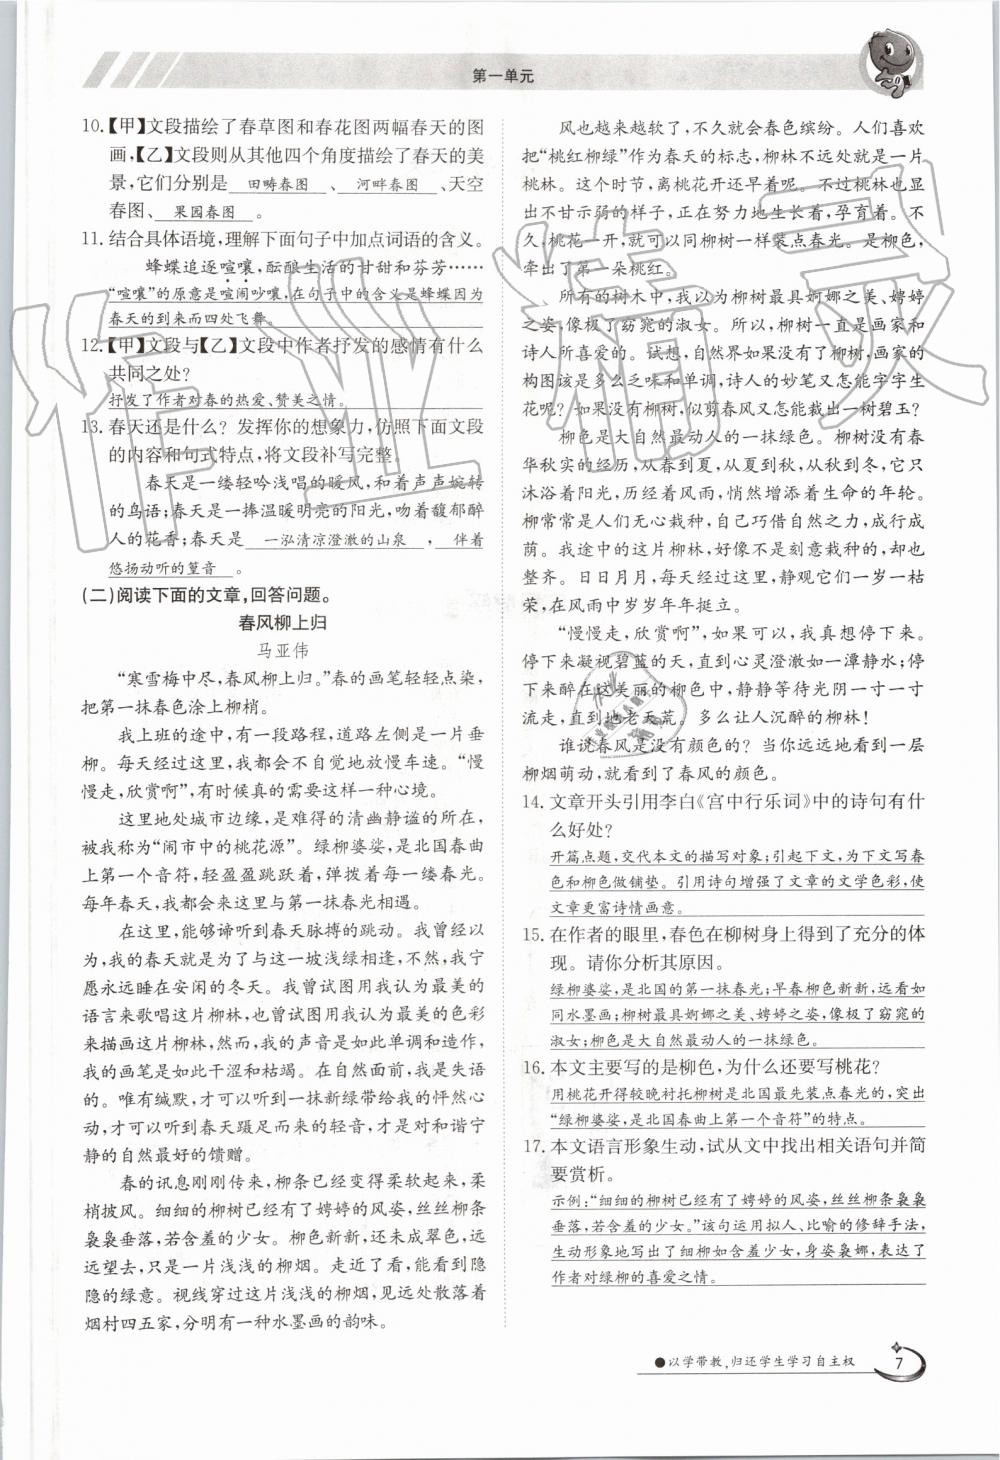 第一单元
10.【甲】文段描绘了春草图和春花图两幅春天的图
画,【乙】文段则从其他四个角度描绘了春天的美
景,它们分别是 田畴春图 、 河畔春图 、天空
春图、 果园春图 。
11. 结合具体语境,理解下面句子中加点词语的含义。
蜂蝶追逐喧嚷,酝酿生活的甘甜和芬芳……
“喧嚷”的原意是喧闹吵嚷,在句子中的含义是蜂蝶因为
春天的到来而四处飞舞。
12.【甲】文段与【乙】文段中作者抒发的感情有什么
共同之处?
抒发了作者对春的热爱、赞美之情。
13. 春天还是什么? 发挥你的想象力,仿照下面文段
的内容和句式特点,将文段补写完整。
春天是一缕轻吟浅唱的暖风,和着声声婉转
的鸟语;春天是一捧温暖明亮的阳光,吻着馥郁醉
人的花香;春天是 一泓清凉澄澈的山泉 , 伴着
悠扬动听的篁音 。
(二)阅读下面的文章,回答问题。
春风柳上归
马亚伟
“寒雪梅中尽,春风柳上归。”春的画笔轻轻点染,
把第一抹春色涂上柳梢。
我上班的途中,有一段路程,道路左侧是一片垂
柳。每天经过这里,我都会不自觉地放慢车速。“慢
慢走,欣赏啊”,有时候真的需要这样一种心境。
这里地处城市边缘,是难得的清幽静谧的所在,
被我称为“闹市中的桃花源”。绿柳婆娑,是北国春曲
上第一个音符,轻盈盈跳跃着,弹奏着每一缕春光。
每年春天,我都会来这里与第一抹春光相遇。
在这里,能够谛听到春天脉搏的跳动。我曾经以
为,我的春天就是为了与这一坡浅绿相逢,不然,我宁
愿永远睡在安闲的冬天。我曾试图用我认为最美的
语言来歌唱这片柳林,也曾试图用我认为最美的色彩
来描绘这片柳林,然而,我的声音是如此单调和造作,
我的画笔是如此干涩和枯竭。在自然面前,我是失语
的。唯有缄默,才可以对得起一抹新绿带给我的怦然心
动,才可以对得起春天蹑足而来的轻音,才对得和谐宁
静的自然最好的馈赠。
春的讯息刚刚传来,柳条已经变得柔软起来,柔
梢披风。细细的柳树已经有了娉婷的风姿,丝丝柳条
袅袅垂落,若含羞的少女。柳色新新,还未成翠色,远
远望去,只是一片浅浅的柳烟。走近了看,能看到隐
隐的绿意。视线穿过这片浅浅的柳烟,见远处散落着
烟村四五家,分明有一种水墨画的韵味。
风也越来越软了,不久就会春色缤纷。人们喜欢
把“桃红柳绿”作为春天的标志,柳林不远处就是一片
桃林。这个时节,离桃花开还早着呢。不过桃林也显
出不甘示弱的样子,正在努力地生长着,孕育着。不
久,桃花一开,就可以同柳树一样装点春光。是柳色,
牵出了第一朵桃红。
所有的树木中,我以为柳树最具婀娜之美、娉婷
之姿,像极了窈窕的淑女。所以,柳树一直是画家和
诗人所喜爱的。试想,自然界如果没有了柳树,画家的
构图该是多么乏味和单调,诗人的妙笔又怎能字字生
花呢? 如果没有柳树,似剪春风又怎能裁出一树碧玉?
柳色是大自然最动人的一抹绿色。柳树没有春
华秋实的经历,从春到夏,从夏到秋,从秋到冬,它只
沐浴着阳光,历经着风雨,悄然增添着生命的年轮。
柳常常是人们无心栽种,自己巧借自然之力,成行成
荫。我途中的这片柳林,好像不是刻意栽种的,却也
整齐。日日月月,每天经过这里,静观它们一岁一枯
荣,在风雨中岁岁年年挺立。
“慢慢走,欣赏啊”,如果可以,我真想停下来。
停下来凝视碧蓝的天,直到心灵澄澈如一潭静水;停
下来醉在这美丽的柳色中,静静等待光阴一寸一寸
流走,直到地老天荒。多么让人沉醉的柳林!
谁说春风是没有颜色的? 当你远远地看到一层
柳烟萌动,就看到了春风的颜色。
14. 文章开头引用李白《宫中行乐词》中的诗句有什
么好处?
开篇点题,交代本文的描写对象;引起下文,为下文写春
色和柳色做铺垫。引用诗句增强了文章的文学色彩,使
文章更富诗情画意。
15. 在作者的眼里,春色在柳树身上得到了充分的体
现。请你分析其原因。
绿柳婆娑,是北国的第一抹春光;早春柳色新新,远看如
同水墨画;柳树最具婀娜之美、娉婷之姿,像极了窈窕的
淑女;柳色是大自然最动人的一抹绿色。
16. 本文主要写的是柳色,为什么还要写桃花?
用桃花开得较晚衬托柳树是北国最先装点春光的,突出
“绿柳婆娑,是北国春曲上第一个音符”的特点。
17. 本文语言形象生动,试从文中找出相关语句并简
要赏析。
示例:“细细的柳树已经有了娉婷的风姿,丝丝柳条袅袅
垂落,若含羞的少女。”该句运用拟人、比喻的修辞手法,
生动形象地写出了细柳如含羞少女,身姿袅娜,表达了
作者对绿柳的喜爱之情。
●以学带教,归还学生学习自主权
7
作业精灵